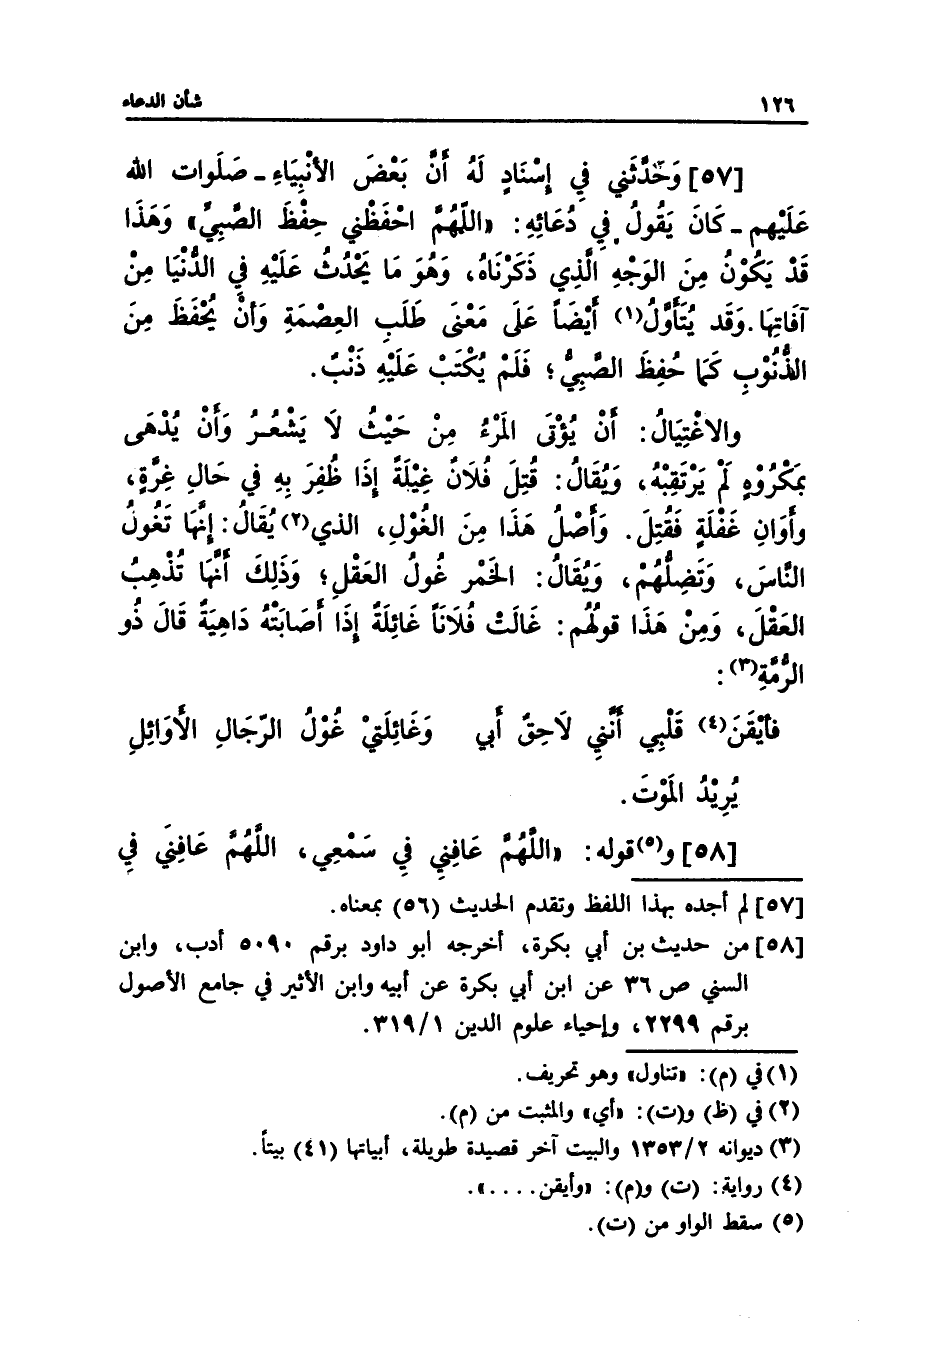 ١٢٦ شأن الدعاء
[٥٧] وَحَدَّثَني فِي إِسْنَادٍ لَهُ أَنَّ بَعْضَ الأنْبِيَاءِ ـ صَلَوات الله
عَلَيْهِم ـ كَانَ يَقُولُ فِي دُعَائِهِ: «اللَّهُمَّ احْفَظْنِي حِفْظَ الصَّبِيِّ» وَهَذَا
قَدْ يَكُوْنُ مِنَ الوَجْهِ الَّذِي ذَكَرْنَاهُ، وَهُوَ مَا يَحْدُثُ عَلَيْهِ فِي الدُّنْيَا مِنْ
آفَاتِهَا. وَقَد يُتَأَوَّلُ(١) أَيْضَاً عَلَى مَعْنَى طَلَبِ العِصْمَةِ وَأَنْ يُحْفَظَ مِنَ
الذُّنُوْبِ كَمَا حُفِظَ الصَّبِيُّ؛ فَلَمْ يُكْتَبْ عَلَيْهِ ذَنْبٌ.
والاغْتِيَالُ: أَنْ يُؤْتَى المَرْءُ مِنْ حَيْثُ لَا يَشْعُـرُ وَأَنْ يُدْهَى
بِمَكْرُوْهٍ لَمْ يَرْتَقِبْهُ، وَيُقَالُ: قُتِلَ فُلَانٌ غِيْلَةً إِذَا ظُفِرَ بِهِ فِي حَالِ غِرَّةٍ،
وأَوَانِ غَفْلَةٍ فَقُتِلَ. وَأَصْلُ هَذَا مِنَ الغُوْلِ، الذي(٢) يُقَالُ: إِنَّهَا تَغُولُ
النَّاسَ، وَتَضِلُّهُمْ، وَيُقَالُ: الخَمْر غُولُ العَقْلِ؛ وَذَلِكَ أَنَّهَا تُذْهِبُ
العَقْلَ، وَمِنْ هَذَا قولُهُم: غَالَتْ فُلَانَاً غَائِلَةٌ إِذَا أَصَابَتْهُ دَاهِيَةٌ قَالَ ذُو
الرُّمَّةِ(٣):
فأيْقَنَ(٤) قَلْبِي أَنَّنِي لَاحِقٌ أَبي وَغَائِلَتِيْ غُوْلُ الرِّجَالِ الأَوَائِلِ
يُرِيْدُ المَوْتَ.
[٥٨] و(٥)قوله: «اللَّهُمَّ عَافِنِي فِي سَمْعِي، اللَّهُمَّ عَافِنِي فِي
[٥٧] لم أجده بهذا اللفظ وتقدم الحديث (٥٦) بمعناه.
[٥٨] من حديث بن أبي بكرة، أخرجه أبو داود برقم ٥٠٩٠ أدب، وابن
السني ص ٣٦ عن ابن أبي بكرة عن أبيه وابن الأثير في جامع الأصول
برقم ٢٢٩٩، وإحياء علوم الدين ٣١٩/١.
(١) في (م): «تناول» وهو تحريف.
(٢) في (ظ) و(ت): «أي» والمثبت من (م).
(٣) ديوانه ١٣٥٣/٢ والبيت آخر قصيدة طويلة، أبياتها (٤١) بيتاً.
(٤) رواية: (ت) و(م): «وأيقن....».
(٥) سقط الواو من (ت).